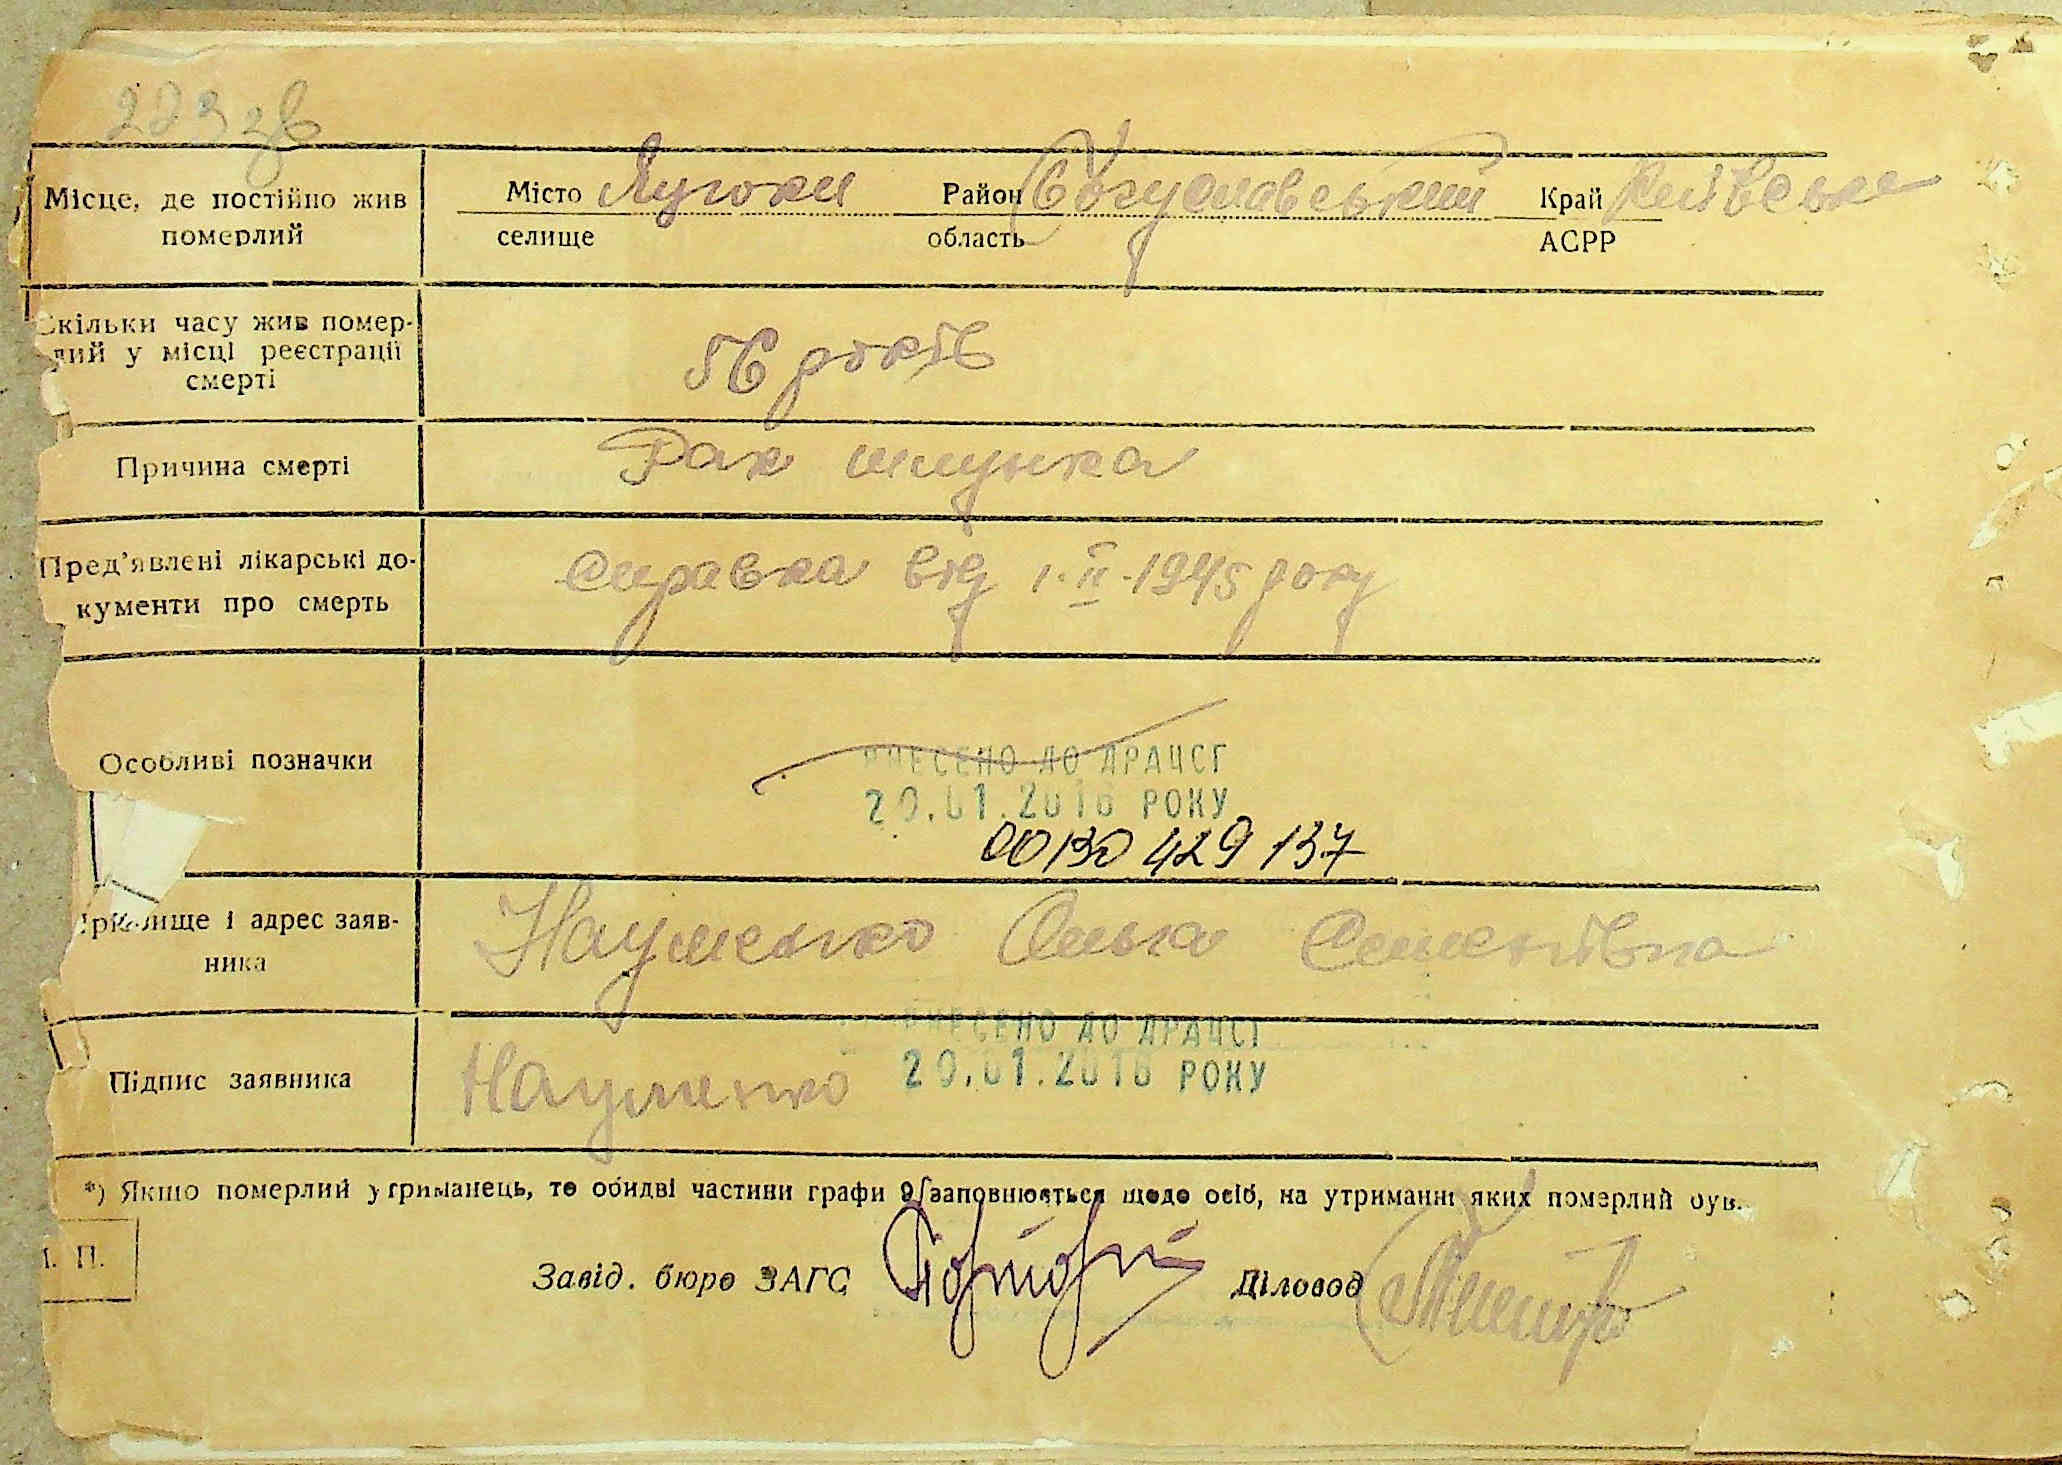 223 зв
Місце, де постійно жив
померлий
Місто Луточки Район Богуславський Край Київська
селище область АСРР
Скільки часу жив помер-
лий у місці реєстрації
смерті
56 років
Причина смерті
Рак шлунка
Пред'явлені лікарські до-
кументи про смерть
Справка від 1·II·1945 року
Особливі позначки
ВНЕСЕНО ДО ДРАЦСГ
20.01.2016 РОКУ
00130 429 137
Прізвище і адрес заяв-
ника
Науменко Ольга Семенівна
Підпис заявника
Науменко
ВНЕСЕНО ДО ДРАЦСГ
20.01.2016 РОКУ
*) Якщо померлий утриманець, то обидві частини графи 9 заповнюється щодо осіб, на утриманні яких померлий був.
М. П.
Завід. бюро ЗАГС Діловод